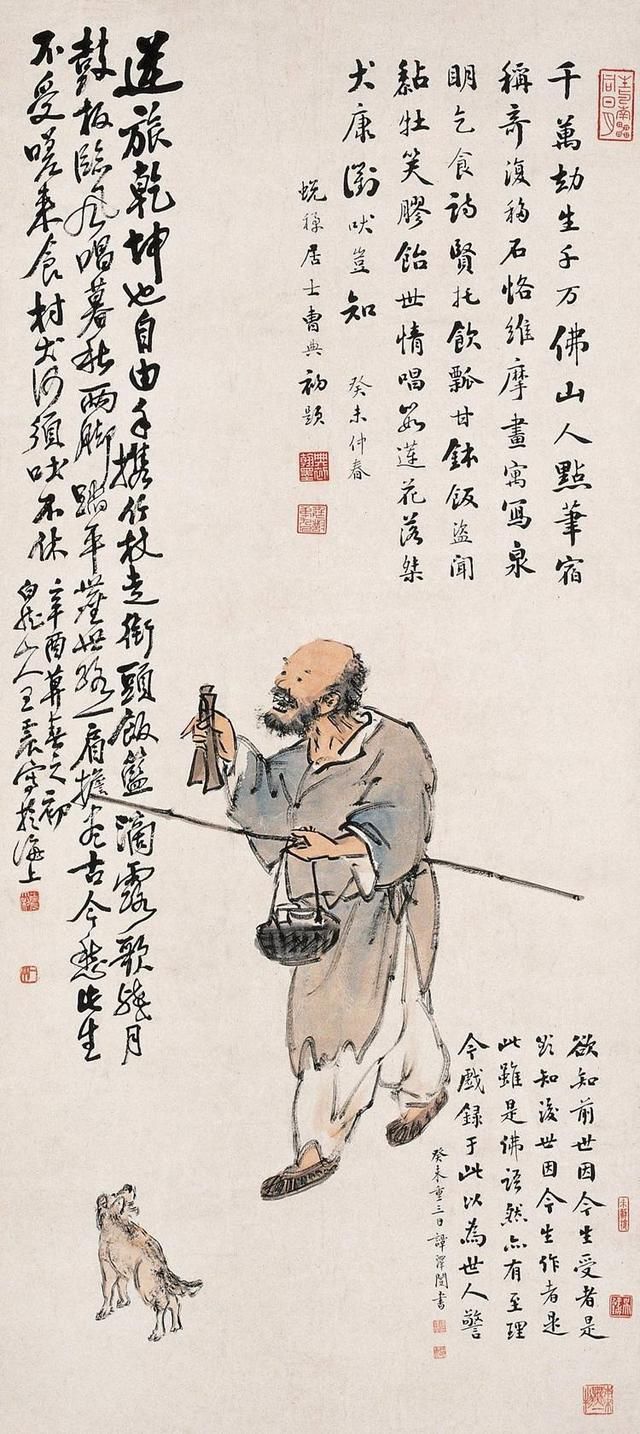 千萬劫生千万佛山人點筆宿
稱奇復石恪維摩畫寓寫泉
明乞食詩賢托飲瓢甘鉢飯盜聞
黏牡笑膠飴世情唱蓮花落桀
犬康衢吠豈知 癸未仲春
蛻禪居士曹典初題
逆旅乾坤也自由手攜竹杖走街頭飯籃滴露歌殘月
鼓板臨風唱暮秋兩脚踏平塵世路一肩擔盡古今愁此生
不受嗟來食村犬何須吠不休
辛酉暮春之初
白龍山人王震寫於海上
欲知前世因今生受者是
欲知後世因今生作者是
此雖是佛語然亦有至理
今戲録于此以為世人警
癸未重三日譚澤闓書